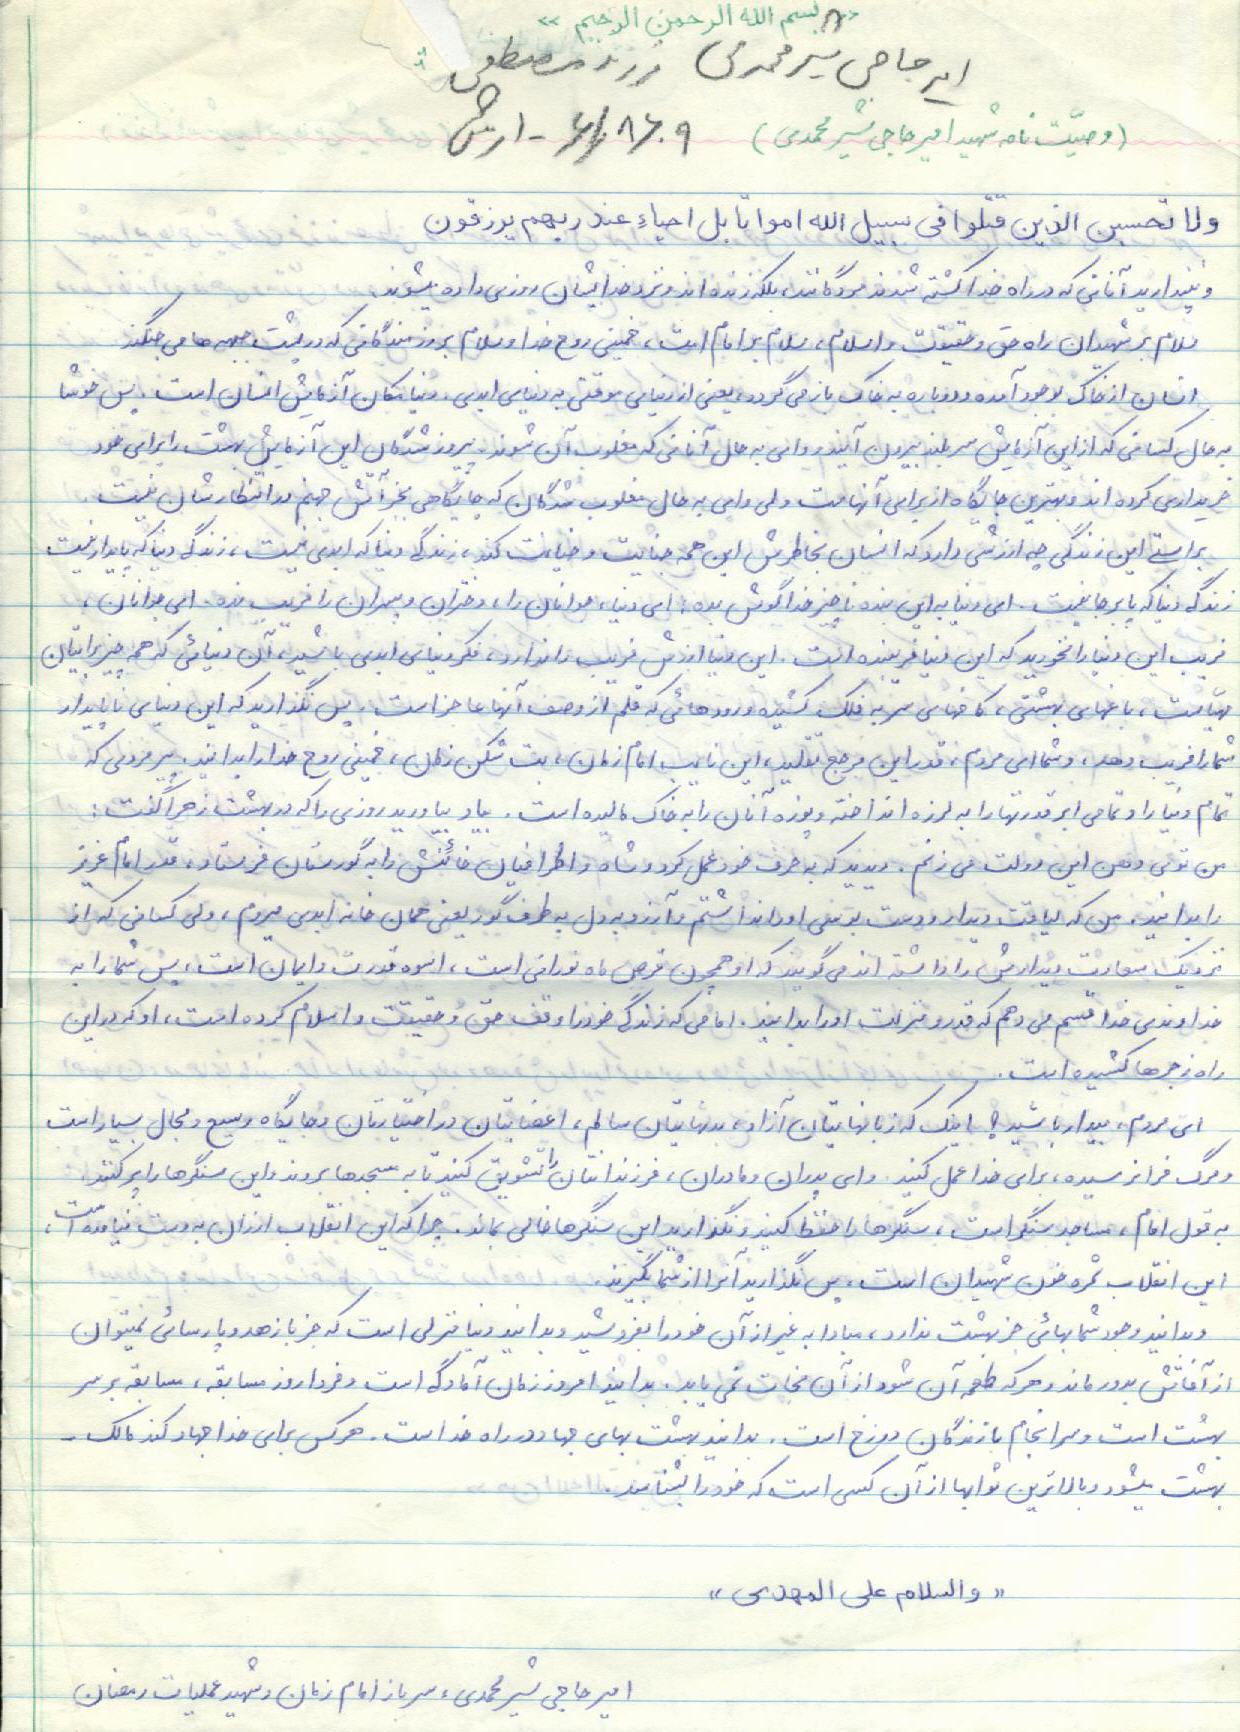 « بسم الله الرحمن الرحیم »
امیر حاجی شیرمحمدی فرزند مصطفی
(وصیّت نامه شهید امیر حاجی شیرمحمدی) ارتش
ولا تحسبن الذین قتلوا فی سبیل الله امواتا بل احیاء عند ربهم یرزقون
و نپندارید آنانی که در راه خدا کشته شدند مردگانند، بلکه زنده اند و نزد خدایشان روزی داده میشوند.
سلام بر شهیدان راه حق و حقیقت و اسلام، سلام بر امام امت، خمینی روح خدا و سلام بر رزمندگانی که در پشت جبهه ها می جنگند
انسان از خاک بوجود آمده و دوباره به خاک باز می گردد، یعنی از دنیای موقتی به دنیای ابدی. دنیا مکان آزمایش انسان است. پس خوشا
به حال کسانی که از این آزمایش سربلند بیرون آیند و وای به حال آنانی که مغلوب آن شوند. پیروز شدگان این آزمایش بهشت را برای خود
خریداری کرده اند و بهترین جایگاه از برای آنهاست ولی وای به حال مغلوب شدگان که جایگاهی بجز آتش جهنم در انتظارشان نیست
براستی این زندگی چه ارزشی دارد که انسان بخاطرش این همه جنایت و خیانت کند، زندگی دنیا که ابدی نیست، زندگی دنیا که پایدار نیست
زندگی دنیا که پابرجا نیست. ای دنیا به این بنده ناچیز خدا گوش بده: ای دنیا، جوانان را، دختران و پسران را فریب نده. ای جوانان،
فریب این دنیا را نخورید که این دنیا فریبنده است. این دنیا ارزش فریب را ندارد، فکر دنیای ابدی باشید، آن دنیائی که همه چیز برایتان
مهیاست، باغهای بهشتی، کاخهای سر به فلک کشیده و رودهائی که قلم از وصف آنها عاجز است. پس نگذارید که این دنیای ناپایدار
شما را فریب دهد، و شما ای مردم، قدر این مرجع تقلید، این نایب امام زمان، بت شکن زمان، خمینی روح خدا را بدانید. پیرمردی که
تمام دنیا را و تمامی ابرقدرتها را به لرزه انداخته و پوزه آنان را به خاک مالیده است. بیاد بیاورید روزی را که در بهشت زهرا گفت:
من توی دهن این دولت می زنم. دیدید که به حرف خود عمل کرد و شاه و اطرافیان خائنش را به گورستان فرستاد، قدر امام عزیز
را بدانید. من که لیاقت دیدار و دست بوسی او را نداشتم و آرزو به دل به طرف گور یعنی همان خانه ابدی میروم، ولی کسانی که از
نزدیک سعادت دیدارش را داشته اند می گویند که او همچون قرص ماه نورانی است، اسوه قدرت و ایمان است، پس شما را به
خداوندی خدا قسم می دهم که قدر و منزلت او را بدانید. امامی که زندگی خود را وقف حق و حقیقت و اسلام کرده است، او که در این
راه زجرها کشیده است.
ای مردم، بیدار باشید! اینک که زبانهایتان آزاد، بدنهایتان سالم، اعضایتان در اختیارتان و جایگاه وسیع و مجال بسیار است
و مرگ فرا نرسیده، برای خدا عمل کنید. و ای پدران و مادران، فرزندانتان را تشویق کنید تا به مسجدها بروند و این سنگرها را پر کنند.
به قول امام، مساجد سنگر است، سنگرها را حفظ کنید و نگذارید این سنگرها خالی بماند. چرا که این انقلاب ارزان به دست نیامده است،
این انقلاب ثمره خون شهیدان است، پس نگذارید آنرا از شما بگیرند.
و بدانید وجود شما بهائی جز بهشت ندارد، مبادا به غیر از آن خود را بفروشید و بدانید دنیا منزلی است که جز با زهد و پارسائی نمیتوان
از آفاتش بدور ماند و هر که طعمه آن شود از آن نجات نمی یابد. بدانید امروز زمان آمادگی است و فردا روز مسابقه، مسابقه بر سر
بهشت است و سرانجام بازندگان دوزخ است. بدانید بهشت بهای جهاد در راه خداست. هر کس برای خدا جهاد کند مالک
بهشت میشود و بالاترین ثوابها از آن کسی است که خود را بشناسد.
« والسلام علی المهدی »
امیر حاجی شیرمحمدی، سرباز امام زمان و شهید عملیات رمضان